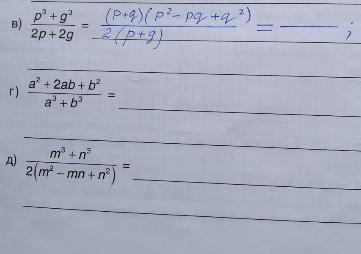 в) (p³ + g³)/(2p + 2g) = ((p+q)(p² − pq + q²))/(2(p+g)) = ;
г) (a² + 2ab + b²)/(a³ + b³) =
д) (m³ + n³)/(2(m² − mn + n²)) =